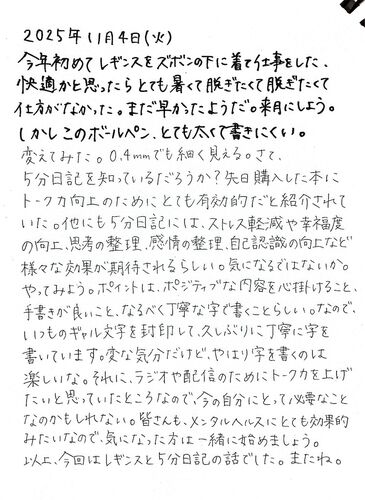 2025年11月4日(火)
今年初めてレギンスをズボンの下に着て仕事をした、
快適かと思ったらとても暑くて脱ぎたくて脱ぎたくて
仕方がなかった。まだ早かったようだ。来月にしよう。
しかしこのボールペン、とても太くて書きにくい。
変えてみた。0.4mmでも細く見える。さて、
5分日記を知っているだろうか？先日購入した本に
トークカ向上のためにとても有効的だと紹介されて
いた。他にも5分日記には、ストレス軽減や幸福度
の向上、思考の整理、感情の整理、自己認識の向上など
様々な効果が期待されるらしい。気になるではないか。
やってみよう。ポイントは、ポジティブな内容を心掛けること、
手書きが良いこと、なるべく丁寧な字で書くことらしい。なので、
いつものギャル文字を封印して、久しぶりに丁寧に字を
書いています。変な気分だけど、やはり字を書くのは
楽しいな。それに、ラジオや配信のためにトーク力を上げ
たいと思っていたところなので、今の自分にとって必要なこと
なのかもしれない。皆さんも、メンタルヘルスにとても効果的
みたいなので、気になった方は一緒に始めましょう。
以上、今回はレギンスと5分日記の話でした。またね。